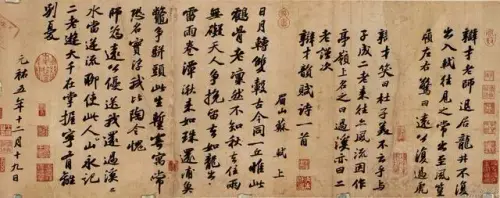 辯才老師退居龍井不復
出入軾往見之常出至風篁
嶺左右驚曰遠公復過虎
溪矣
辯才笑曰杜子美不云乎與
子成二老來往亦風流因作
亭嶺上名之曰過溪亦曰二
老謹次
辯才韻賦詩一首
眉山蘇軾上
日月轉雙轂古今同一丘惟此
鶴骨老凜然不知秋去住兩
無礙天人爭挽留去如龍出山
雷雨卷潭湫來如珠還浦魚
鼈爭駢頭此生暫寄寓常
恐名實浮我比陶令愧
師爲遠公優送我還過溪溪
水當逆流聊使此人山永記
二老遊大千在掌握寧有離
別憂
元祐五年十二月十九日